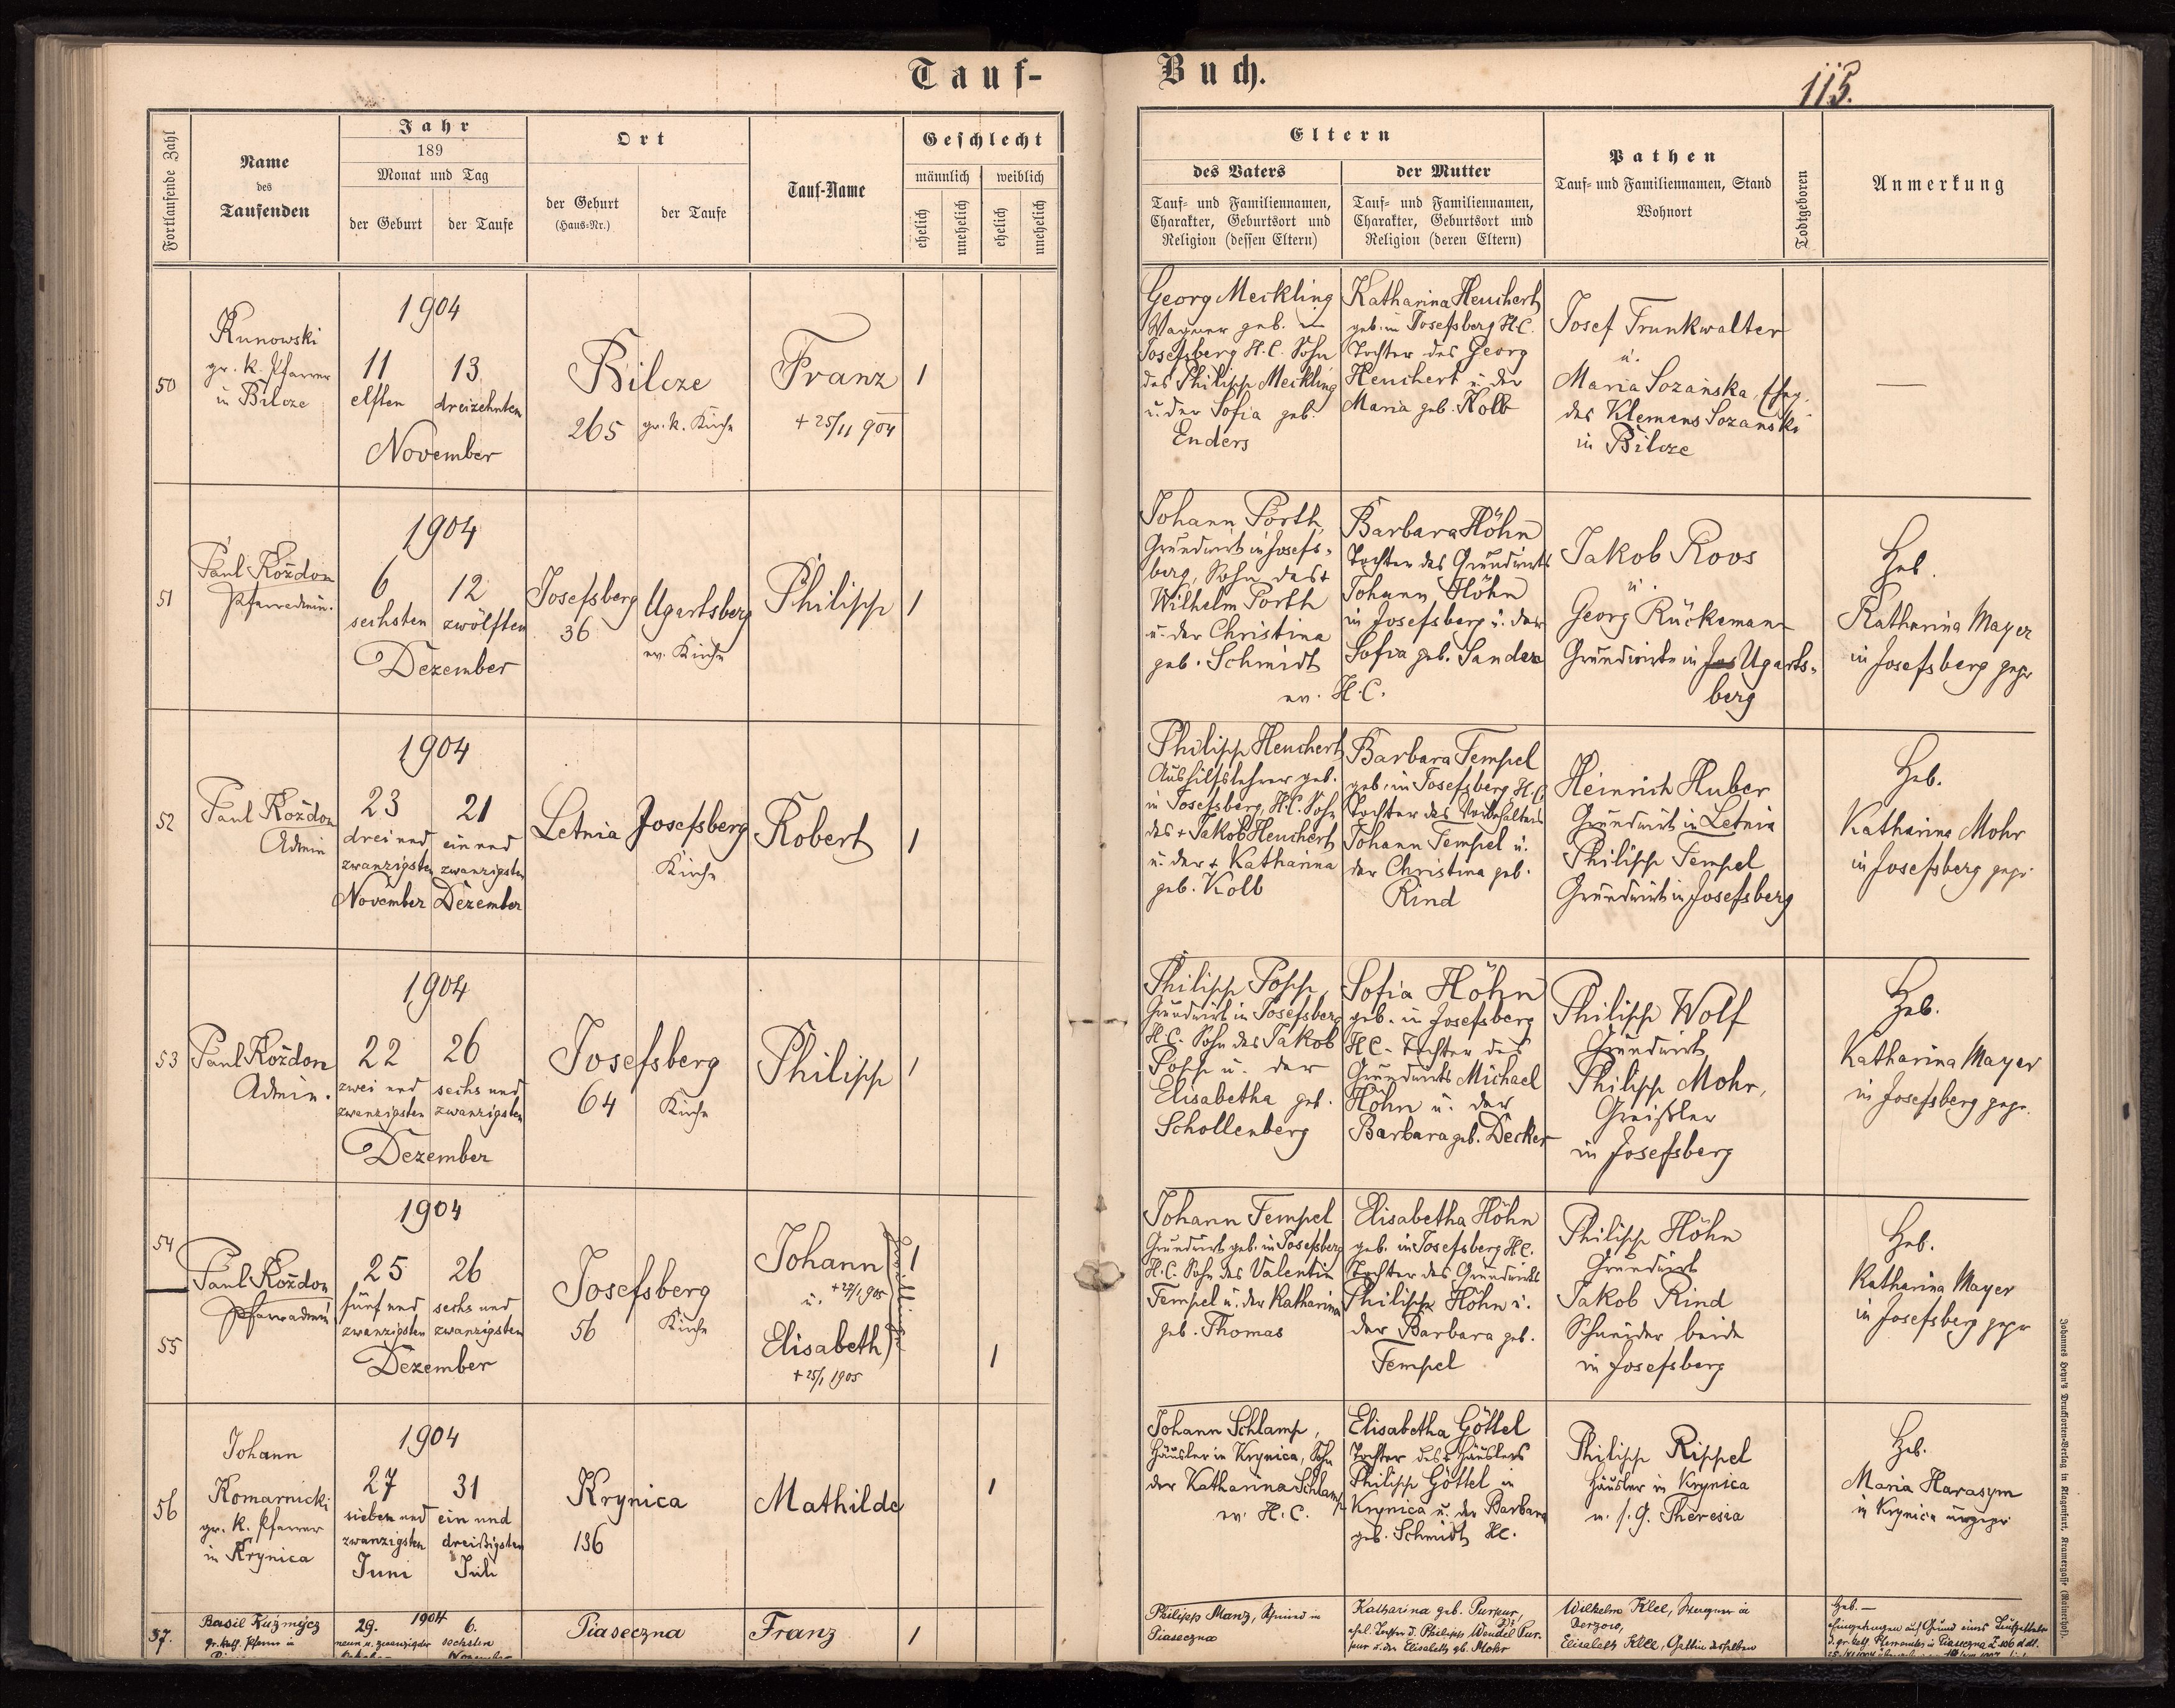 Tauf-Buch.
115.
Fortlaufende Zahl
Name
des
Taufenden
Jahr
189
Monat und Tag
der Geburt
der Taufe
Ort
der Geburt
(Haus-Nr.)
der Taufe
Tauf-Name
Geschlecht
männlich
weiblich
ehelich
unehelich
ehelich
unehelich
Eltern
des Vaters
Tauf- und Familiennamen,
Charakter, Geburtsort und
Religion (dessen Eltern)
der Mutter
Tauf- und Familiennamen,
Charakter, Geburtsort und
Religion (deren Eltern)
Pathen
Tauf- und Familiennamen, Stand
Wohnort
Todtgeboren
Anmerkung
50
Kunowski
gr. k. Pfarrer
in Bilcze
1904
11
elften
13
dreizehnten
November
Bilcze
265
gr. k. Kirche
Franz
+ 25/11 904
1
Georg Meckling
Wagner geb. in
Josefsberg H.C. Sohn
des Philipp Meckling
u. der Sofia geb.
Enders
Katharina Heuchert
geb. in Josefsberg H.C.
Tochter des Georg
Heuchert u. der
Maria geb. Kolb
Josef Trunkwalter
u.
Maria Sozańska,
des Klemens Sozański
in Bilcze
—
51
Paul Kożdon
Pfarradmin.
1904
6
sechsten
12
zwölften
Dezember
Josefsberg
36
Ugartsberg
ev. Kirche
Philipp
1
Johann Porth,
Grundwirt in Josefs-
berg, Sohn des +
Wilhelm Porth
u. der Christina
geb. Schmidt
Barbara Höhn
Tochter des Grundwirts
Johann Höhn
in Josefsberg u. der
Sofia geb. Sander
ev. H.C.
Jakob Roos
u.
Georg Rückemann
Grundwirte in Jos Ugarts-
berg
Heb.
Katharina Mayer
in Josefsberg gepr
52
Paul Kożdon
Admin
1904
23
drei und
zwanzigsten
November
21
ein und
zwanzigsten
Dezember
Letnia
Josefsberg
Kirche
Robert
1
Philipp Heuchert
Aushilfslehrer geb.
in Josefsberg, H.C. Sohn
des + Jakob Heuchert
u. der + Katharina
geb. Kolb
Barbara Tempel
geb. in Josefsberg H.C.
Tochter des Vorbehalters
Johann Tempel u.
der Christina geb.
Rind
Heinrich Huber
Grundwirt in Letnia
Philipp Tempel
Grundwirt in Josefsberg
Heb.
Katharina Mohr
in Josefsberg gepr
53
Paul Kożdon
Admin.
1904
22
zwei und
zwanzigsten
26
sechs und
zwanzigsten
Dezember
Josefsberg
64
Kirche
Philipp
1
Philipp Popp,
Grundwirt in Josefsberg
H.C. Sohn des Jakob
Popp u. der
Elisabetha geb.
Schollenberg
Sofia Höhn
geb. in Josefsberg
H.C. Tochter des
Grundwirts Michael
Höhn u. der
Barbara geb. Decker
Philipp Wolf
Grundwirt
Philipp Mohr,
Greißler
in Josefsberg
Heb.
Katharina Mayer
in Josefsberg gepr.
54
55
Paul Kożdon
Pfarradmin
1904
25
fünf und
zwanzigsten
26
sechs und
zwanzigsten
Dezember
Josefsberg
56
Kirche
Johann
+ 27/1 905
u.
Elisabeth
+ 25/1 1905
Zwillinge
1
1
Johann Tempel
Grundwirt geb. in Josefsberg
H.C. Sohn des Valentin
Tempel u. der Katharina
geb. Thomas
Elisabetha Höhn
geb. in Josefsberg H.C.
Tochter des Grundwirts
Philipp Höhn u.
der Barbara geb.
Tempel
Philipp Höhn
Grundwirt
Jakob Rind
Schneider beide
in Josefsberg
Heb.
Katharina Mayer
in Josefsberg gepr
56
Johann
Komarnicki
gr. k. Pfarrer
in Krynica
1904
27
sieben und
zwanzigsten
Juni
31
ein und
dreißigsten
Juli
Krynica
136
Mathilde
1
Johann Schlamp,
Häusler in Krynica, Sohn
der Katharina Schlamp
ev. H.C.
Elisabetha Göttel
Tochter des + Häuslers
Philipp Göttel in
Krynica u. der Barbara
geb. Schmidt H.C.
Philipp Rippel
Häusler in Krynica
u. s. G. Theresia
Heb.
Maria Harasym
in Krynica ungepr
57.
Basil Kuźmycz
gr. kath. Pfarrer in
1904
29.
neun u. zwanzigster
6.
sechsten
November
Piaseczna
Franz
1
Philipp Manz, Schmied in
Piaseczna
Katharina geb. Purpur,
ehel. Tochter d. Philipp Wendel Pur-
pur u. der Elisabeth geb. Mohr
Wilhelm Klee, Wagner in
Derzow,
Elisabeth Klee, Gattin desselben
Heb. —
Eingetragen auf Grund eines Taufzettels
d. gr. kath. Pfarramtes in Piaseczna
Johannes Heyn's Drucksorten-Verlag in Klagenfurt, Kramergasse (Mainerhof).